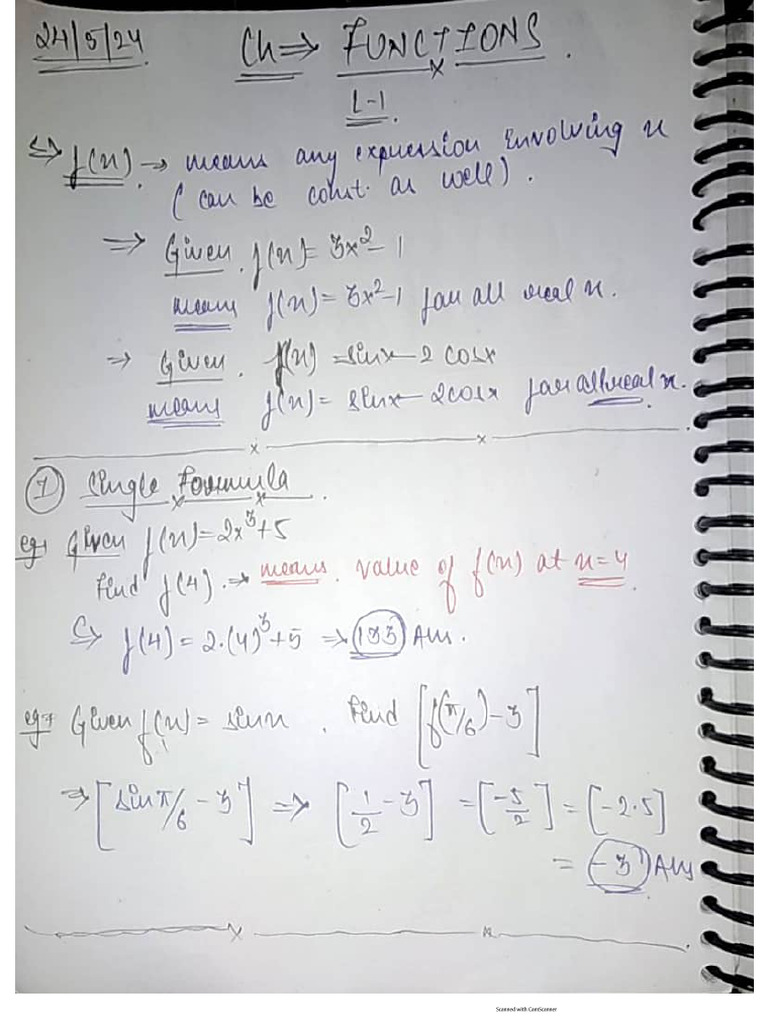 24/5/24 Ch ⇒ FUNCTIONS.
L-1
↪ f(x) → means any expression involving x
(can be const. as well).
⇒ Given. f(x) = 3x²-1
means f(x) = 3x²-1 for all real x.
→ Given. f(x) = sinx - 2 cosx
means f(x) = sinx - 2cosx for all real x.
① Single Formula.
eg→ Given f(x) = 2x³+5
Find f(4). → means. value of f(x) at x=4
↪ f(4) = 2.(4)³+5 ⇒ 133 Ans.
eg→ Given f(x) = sinx. Find [f(π/6)-3]
⇒ [sin π/6 - 3] ⇒ [1/2 - 3] = [-5/2] = [-2.5]
= -3 Ans
Scanned with CamScanner